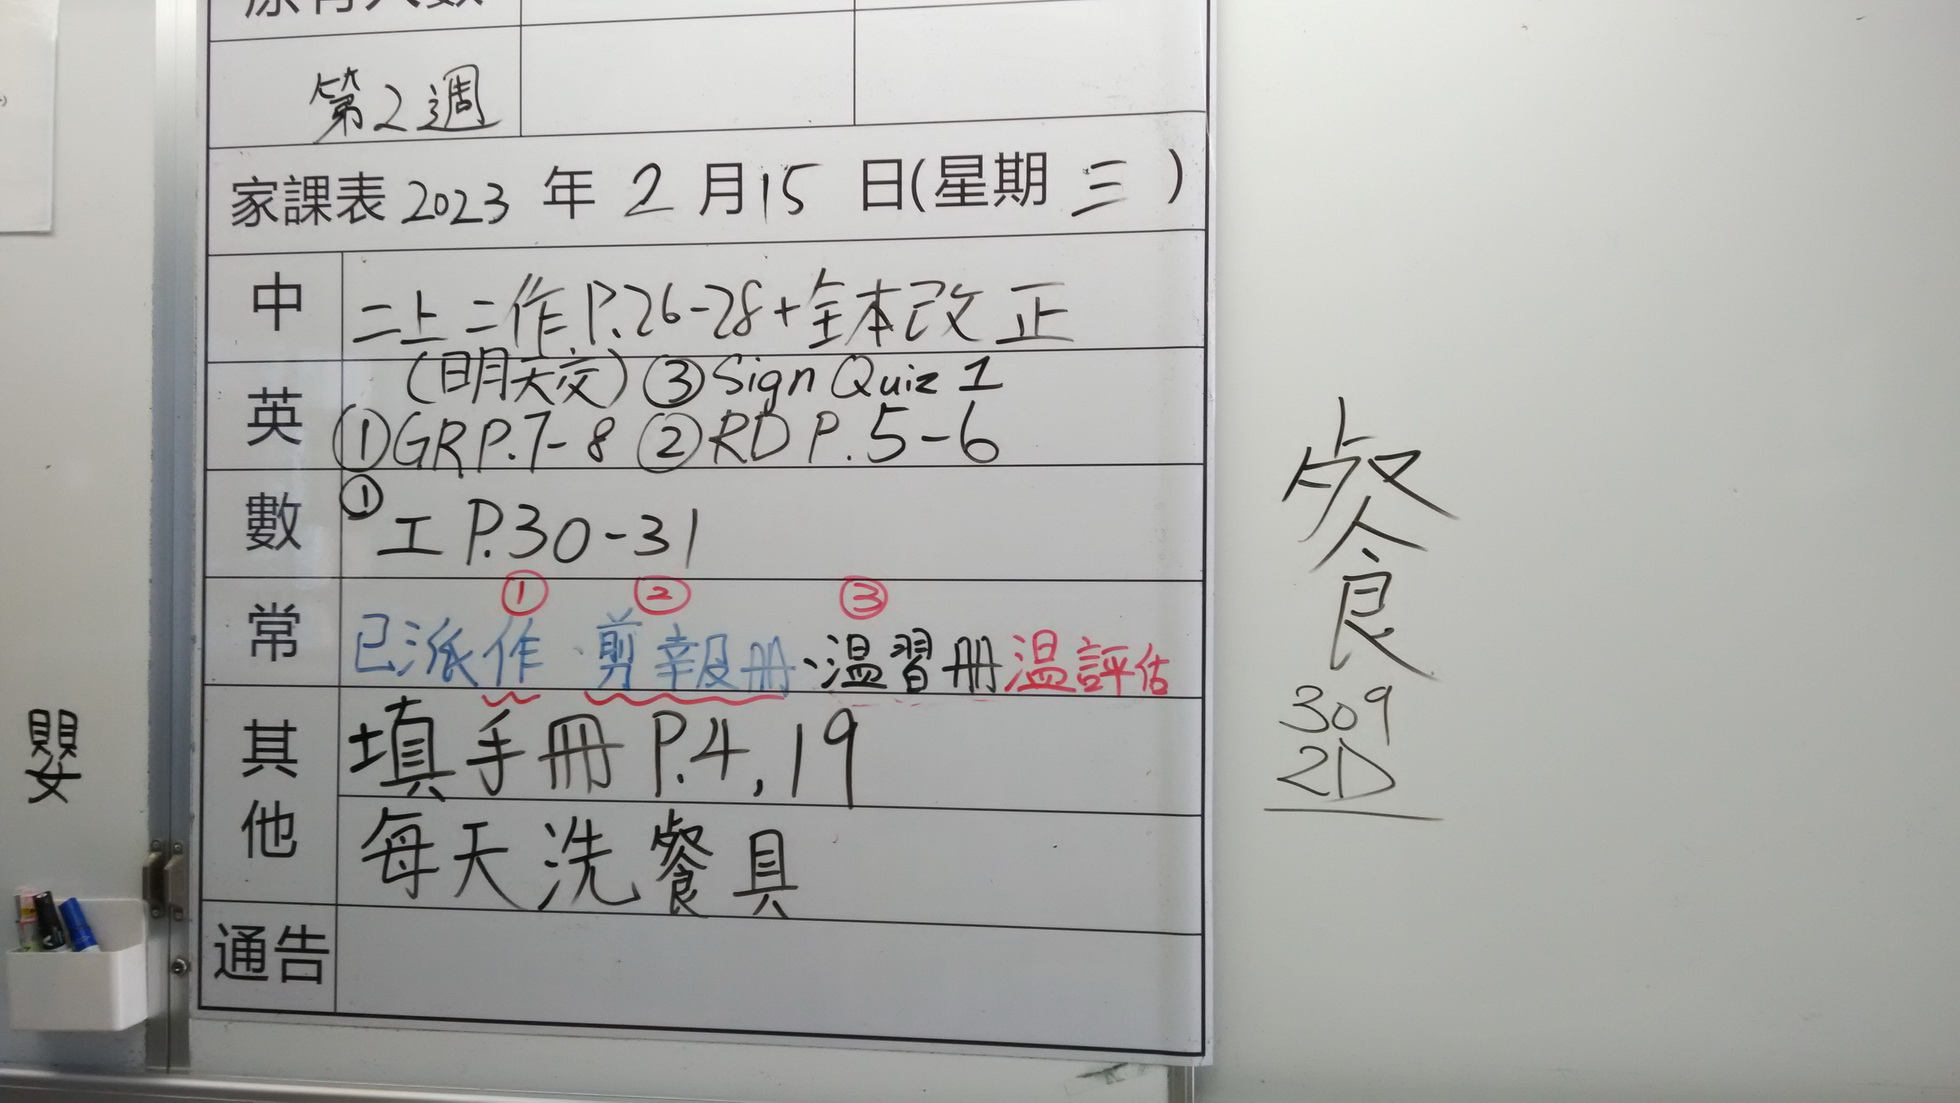 原有人數
第2週
家課表 2023 年 2 月 15 日(星期 三 )
中 二上二作 P.26-28+全本改正
(明天交) ③ Sign Quiz 1
英 ① GR P.7-8 ② RD P.5-6
數 ① 工 P.30-31
① ② ③
常 已派作、剪報册、溫習册溫評估
其他 填手冊 P.4, 19
每天洗餐具
通告
餐
309
2D
嬰